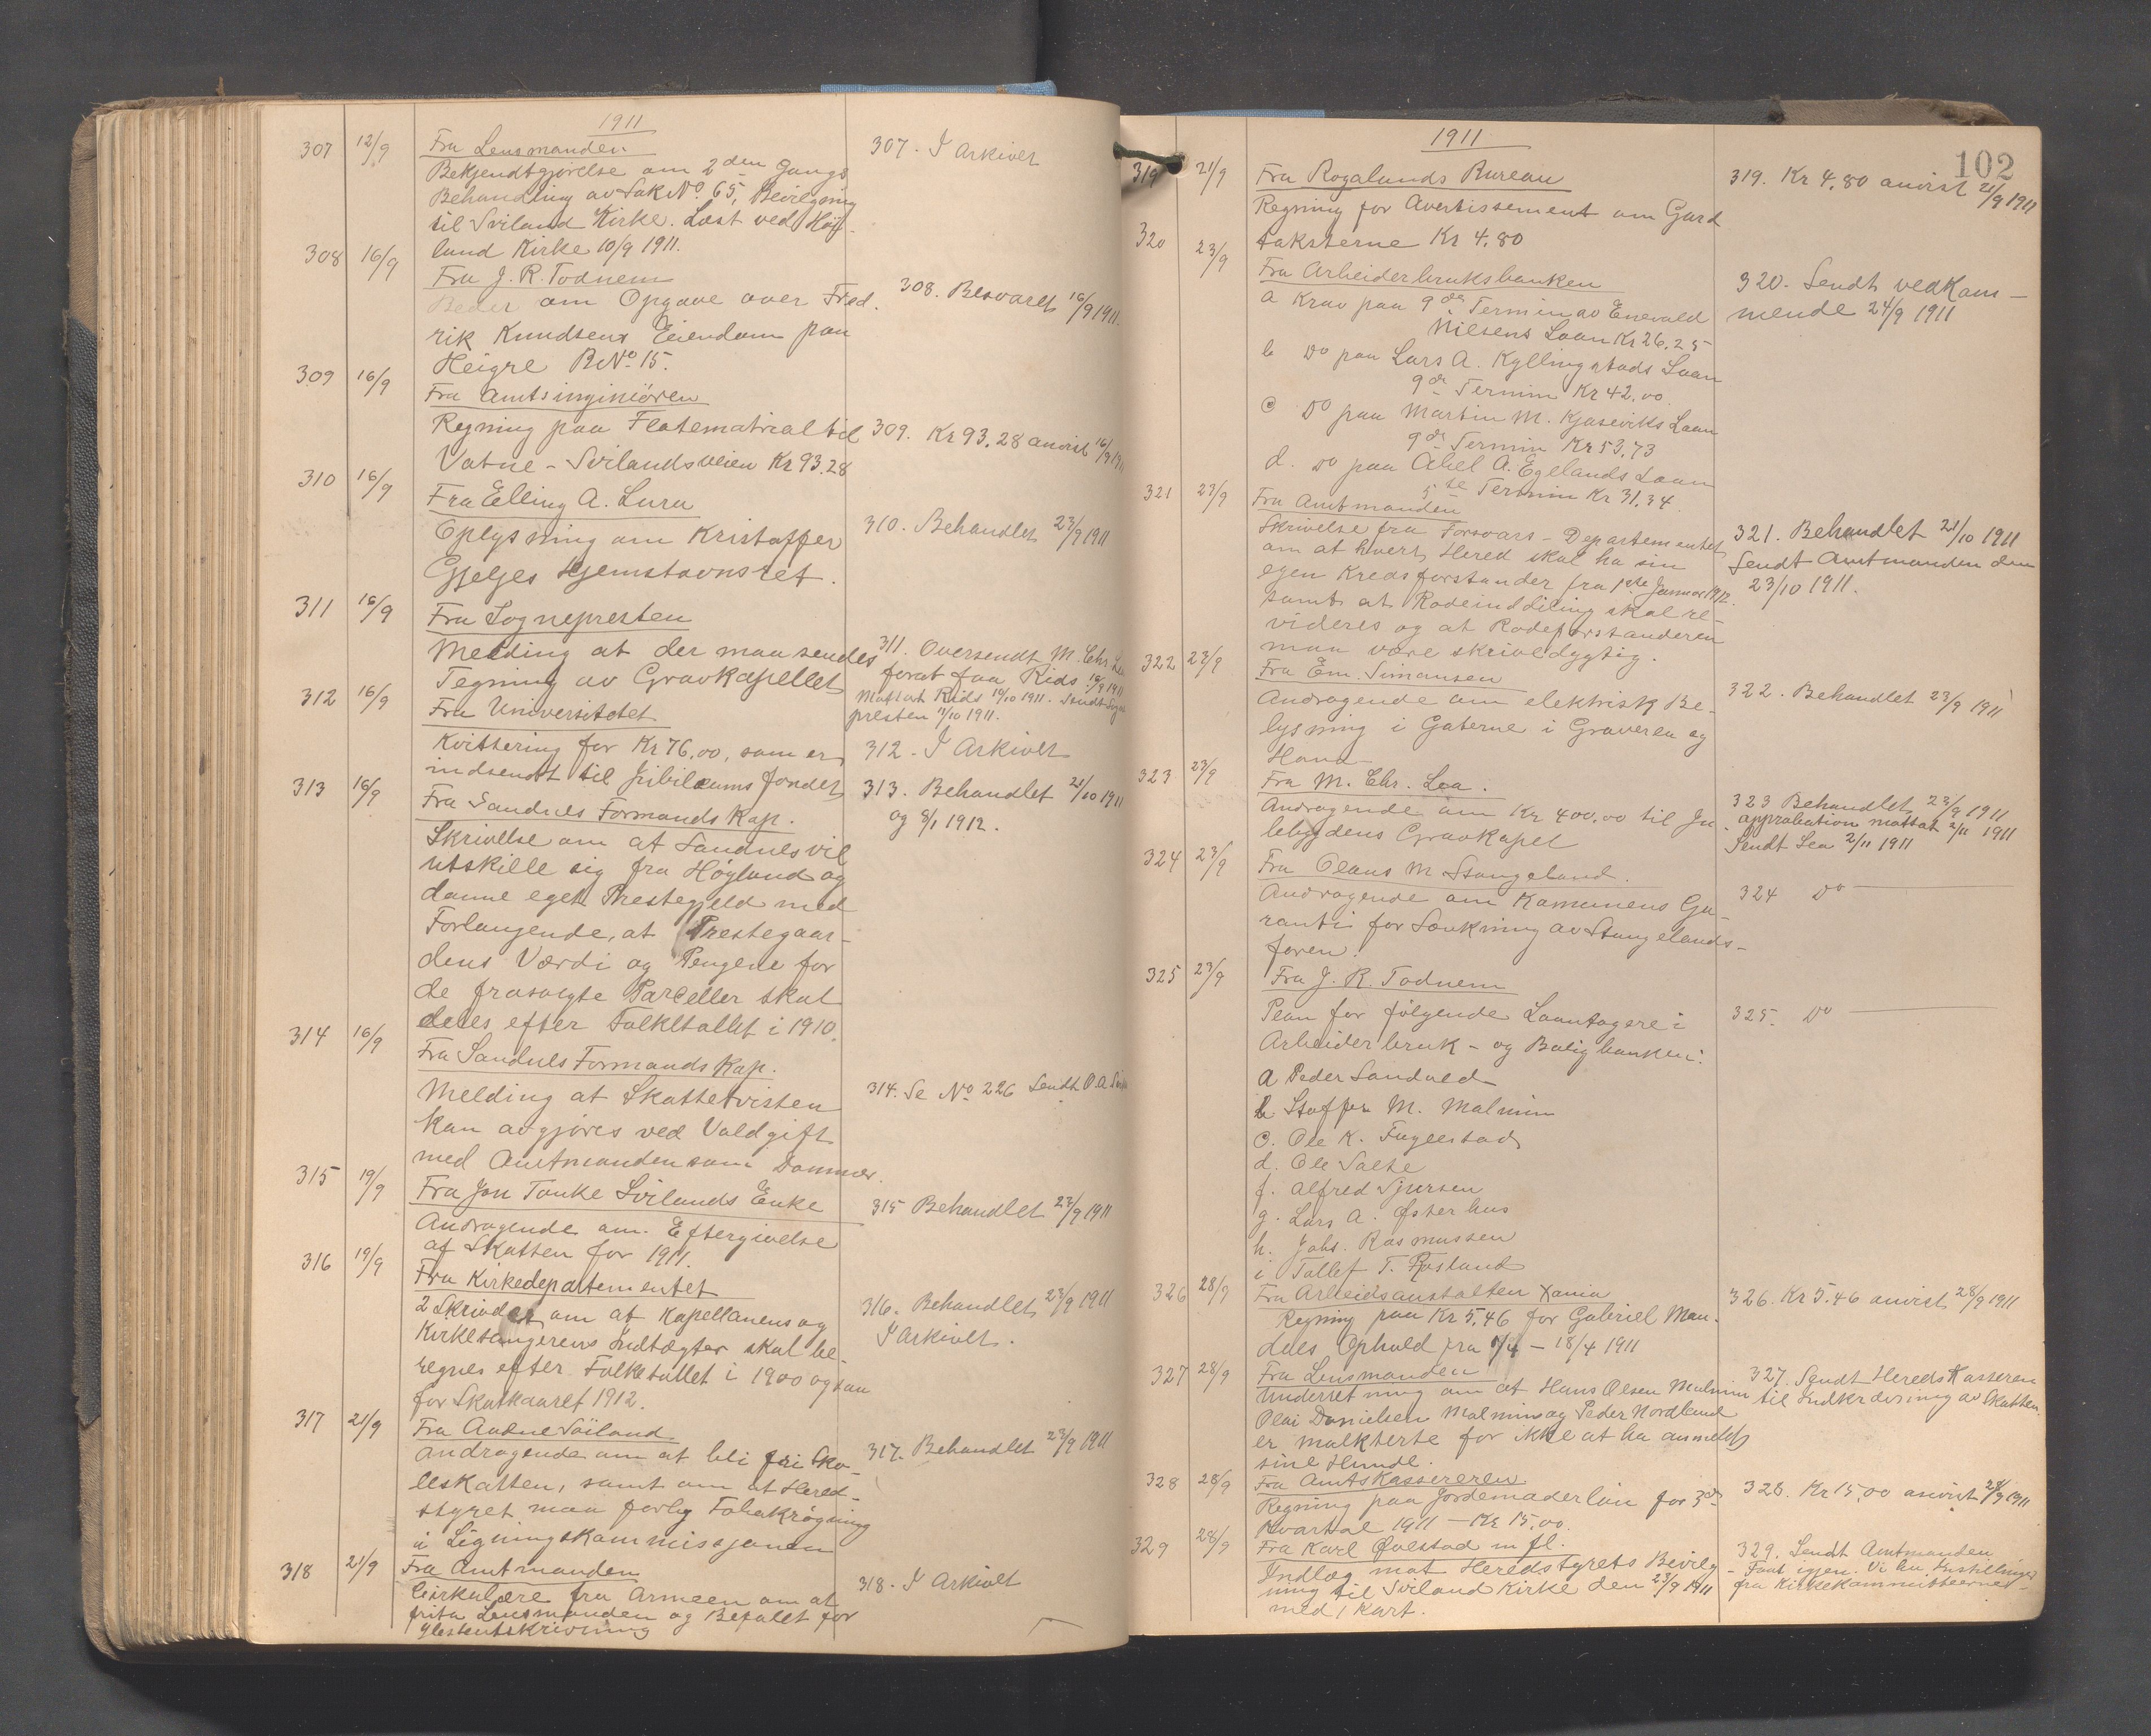 1911
307 12/9 Fra Lensmanden
Bekjendtgjørelse om 2den Gangs
Behandling av Sak No. 65, Bevilgning
til Sviland Kirke. Læst ved Høy-
land Kirke 10/9 1911.
307. I Arkivet
308 16/9 Fra J. R. Todnem
Beder om Opgave over Fred-
rik Knudsens Eiendom paa
Heigre BNo. 15.
308. Besvaret 16/9 1911.
309 16/9 Fra Amtsinginiören
Regning paa Flatematrial til
Vatne - Svilandsveien Kr 93.28
309. Kr 93.28 anvist 16/9 1911
310 16/9 Fra Elling A. Lura
Oplysning om Kristoffer
Gjeljes Hjemstavnsret.
310. Behandlet 23/9 1911
311 16/9 Fra Sognepresten
Melding at der maa sendes
Tegning av Gravkapellet
311. Oversendt M. Chr. Lea
forat faa Rids 16/9 1911
Mottat Rids 10/10 1911. Sendt Sogne
presten 11/10 1911.
312 16/9 Fra Universitetet
Kvittering for Kr 76,00, som er
indsendt til Jubilæumsfondet
312. I Arkivet
313 16/9 Fra Sandnes Formandskap.
Skrivelse om at Sandnes vil
utskille sig fra Høyland og
danne eget Prestegjeld med
Forlangende, at Prestegaar-
dens Værdi og Pengene for
de frasolgte Parceller skal
deles efter Folketallet i 1910.
313. Behandlet 21/10 1911
og 8/1 1912.
314 16/9 Fra Sandnes Formandskap.
Melding at Skattetvisten
kan avgjøres ved Voldgift
med Amtmanden som Dommer.
314. Se No. 226 Sendt O A
315 19/9 Fra Jon Tonke Svilands Enke
Andragende om Eftergivelse
af Skatten for 1911.
315 Behandlet 23/9 1911
316 19/9 Fra Kirkedepartementet
2 Skrivelser om at Kapellanens og
Kirkesangerens Indtægter skal be-
regnes efter Folketallet i 1900 ogsaa
for Skatkaaret 1912.
316. Behandlet 23/9 1911
I Arkivet.
317 21/9 Fra Audne Söiland
Andragende om at bli fri Sko-
leskatten, samt om at Hered-
styret maa forby Tobakrøgning
i Ligningskommissjonen
317. Behandlet 23/9 1911
318 21/9 Fra Amtmanden
Cirkulære fra Armeen om at
frita Lensmanden og Befalet for
Hesteutskrivning
318. I Arkivet
1911
102
319 21/9 Fra Rogalands Bureau
Regning for Avertissement om Gard
taksterne Kr 4,80
319. Kr 4,80 anvist 21/9 1911
320 23/9 Fra Arbeiderbruksbanken
a Krav paa 9de Termin av Enevald
Nielsens Laan Kr 26.25
b Do paa Lars A. Kyllingstads Laan
9de Termin Kr 42.00.
c Do paa Martin M. Kjoseviks Laan
9de Termin Kr 53,73
d. Do paa Abel A. Egelands Laan
5te Termin Kr 31,34.
320. Sendt vedkom-
mende 24/9 1911
321 23/9 Fra Amtmanden
Skrivelse fra Forsvars-Departementet
om at hvert Hered skal ha sin
egen Kredsforstander fra 1ste Januar 1912.
samt at Rodeinddeling skal re-
videres og at Rodeforstanderen
maa være skrivedygtig.
321. Behandlet 21/10 1911
Sendt Amtmanden den
23/10 1911.
322 23/9 Fra Em. Simonsen
Andragende om elektrisk Be-
lysning i Gaterne i Graveren og
Hana
322. Behandlet 23/9 1911
323 23/9 Fra M. Chr. Lea.
Andragende om Kr 400.00 til In-
debygdens Gravkapel
323 Behandlet 23/9 1911
approbation mottat 2/11 1911
Sendt Lea 2/11 1911
324 23/9 Fra Olaus M Stangeland.
Andragende om Komunens Ga-
ranti for Senkning av Stangelands-
foren.
324 Do
325 23/9 Fra J. R. Todnem
Plan for følgende Laantagere i
Arbeiderbruk- og Boligbanken:
a Peder Sandved
b Stoffer M. Malmin
c. Ole K. Fuglestad
d. Ole Salte
f. Alfred Sjursen
g. Lars A. Østerhus
h. Johs. Rasmussen
i Tollef T. Røsland
325. Do
326 28/9 Fra Arbeidsanstalten Xania
Regning paa Kr 5,46 for Gabriel Man-
dels Ophold fra 1/4 - 18/4 1911
326. Kr 5.46 anvist 28/9 1911
327 28/9 Fra Lensmanden
Underretning om at Hans Olsen Malmin
Olai Danielsen Malmin og Peder Nordland
er mulkterte for ikke at ha anmeldt
sine Hunde.
327. Sendt HeredsKasseren
til Indkrævning av Skatten.
328 28/9 Fra Amtskassereren.
Regning paa Jordemoderløn for 3de
Kvartal 1911 - Kr 15,00.
328. Kr 15,00 anvist 28/9 1911
329 28/9 Fra Karl Ovestad m fl.
Indlæg mot Heredstyrets Bevilg-
ning til Sviland Kirke den 23/9 1911
med 1 Kart.
329. Sendt Amtmanden
- Faat igjen. Vi ha Indstillinger
fra Kirkekommitteerne -